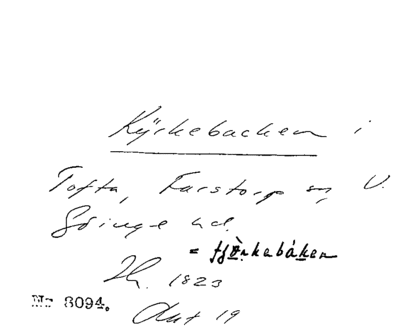 Kyrkebacken i
Tofta, Farstorp sn, V.
Göinge hd.
= tjö̀rkebáken
Jh. 1823
Nr 8094.
Akt 19